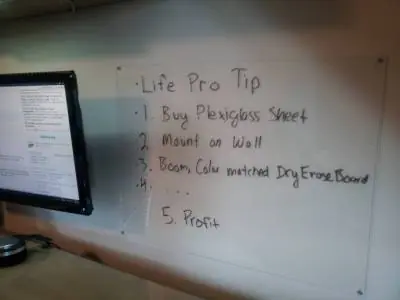 ·Life Pro Tip
·1. Buy Plexiglass Sheet
2. Mount on Wall
3. Boom, Color matched Dry Erase Board
·4. ...
5. Profit